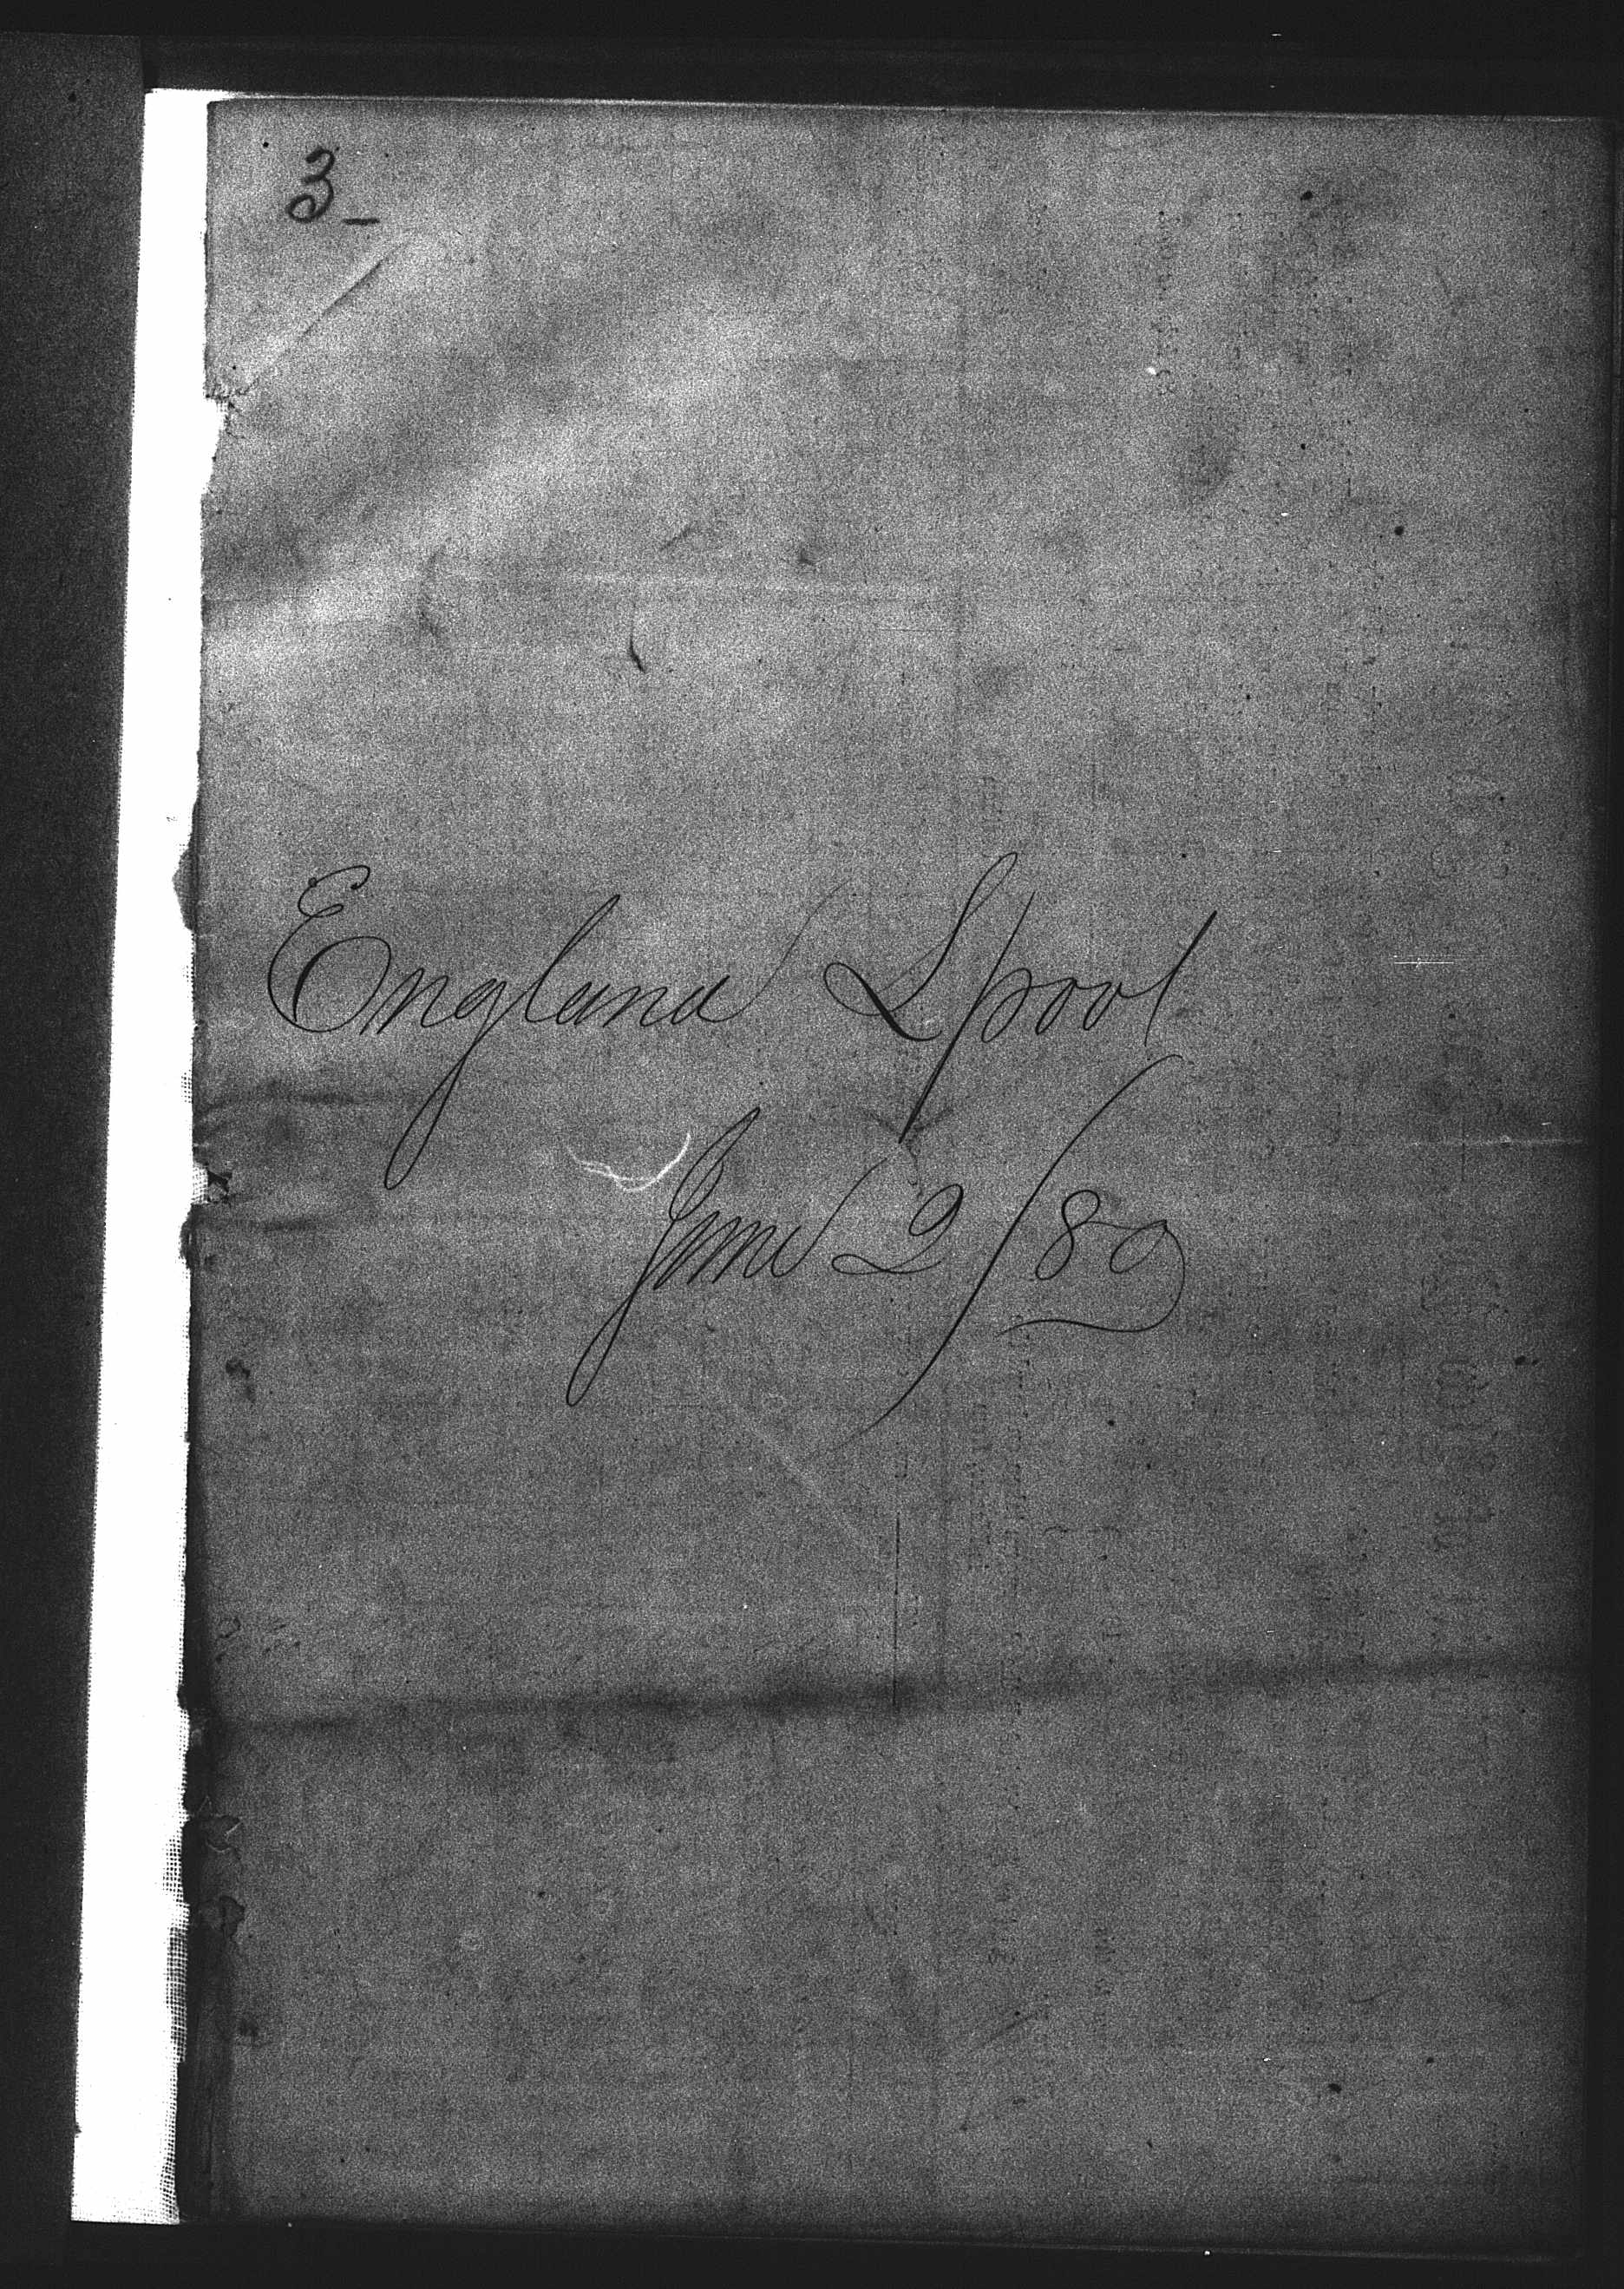 3_
England Lpool
June 2/89